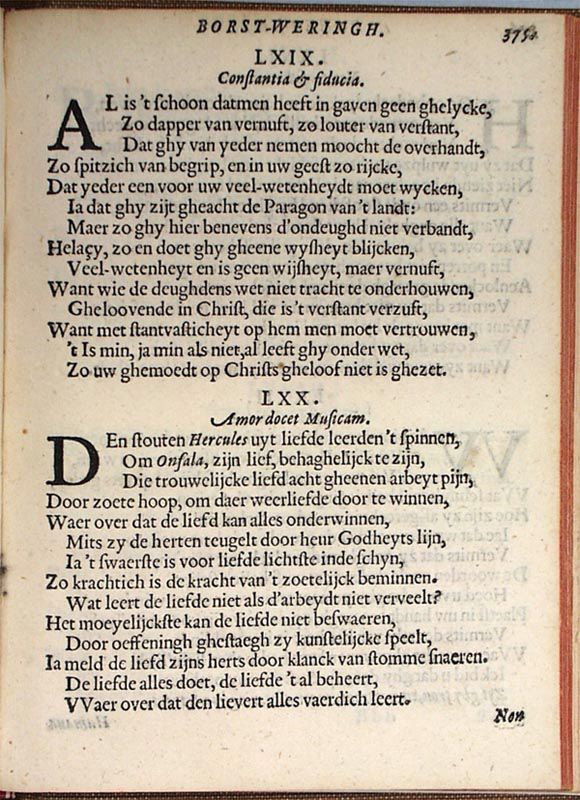 BORST-WERINGH. 375.
LXIX.
Conſtantia & fiducia.
AL is 't ſchoon datmen heeft in gaven geen ghelycke,
Zo dapper van vernuft, zo louter van verſtant,
Dat ghy van yeder nemen moocht de overhandt,
Zo ſpitzich van begrip, en in uw geeſt zo rijcke,
Dat yeder een voor uw veel-wetenheydt moet wycken,
Ia dat ghy zijt gheacht de Paragon van 't landt:
Maer zo ghy hier benevens d'ondeughd niet verbandt,
Helaçy, zo en doet ghy gheene wyſheyt blijcken,
Veel-wetenheyt en is geen wijſheyt, maer vernuft,
Want wie de deughdens wet niet tracht te onderhouwen,
Gheloovende in Chriſt, die is 't verſtant verzuft,
Want met ſtantvaſticheyt op hem men moet vertrouwen,
't Is min, ja min als niet, al leeft ghy onder wet,
Zo uw ghemoedt op Chriſts gheloof niet is ghezet.
LXX.
Amor docet Muſicam.
DEn ſtouten Hercules uyt liefde leerden 't ſpinnen,
Om Onfala, zijn lief, behaghelijck te zijn,
Die trouwelijcke liefd acht gheenen arbeyt pijn,
Door zoete hoop, om daer weerliefde door te winnen,
Waer over dat de liefd kan alles onderwinnen,
Mits zy de herten teugelt door heur Godheyts lijn,
Ia 't ſwaerſte is voor liefde lichtſte inde ſchyn,
Zo krachtich is de kracht van 't zoetelijck beminnen.
Wat leert de liefde niet als d'arbeydt niet verveelt?
Het moeyelijckſte kan de liefde niet beſwaeren,
Door oeffeningh gheſtaegh zy kunſtelijcke ſpeelt,
Ia meld de liefd zijns herts door klanck van ſtomme ſnaeren.
De liefde alles doet, de liefde 't al beheert,
VVaer over dat den lievert alles vaerdich leert.
Non